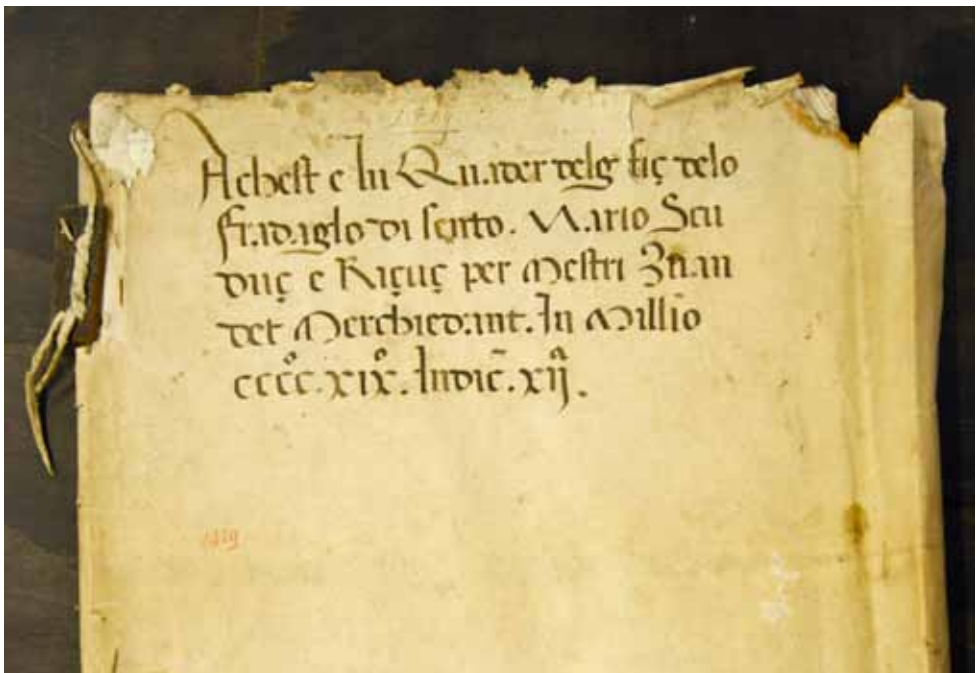 1419
Achest e lu Quader delg fiç delo
fradaglo di sento. Mario Scu
duç e Riçuç per Mestri Zuan
det Merchiedant. In Millio
cccc°.xix°. Indic̃. xijª.
1419